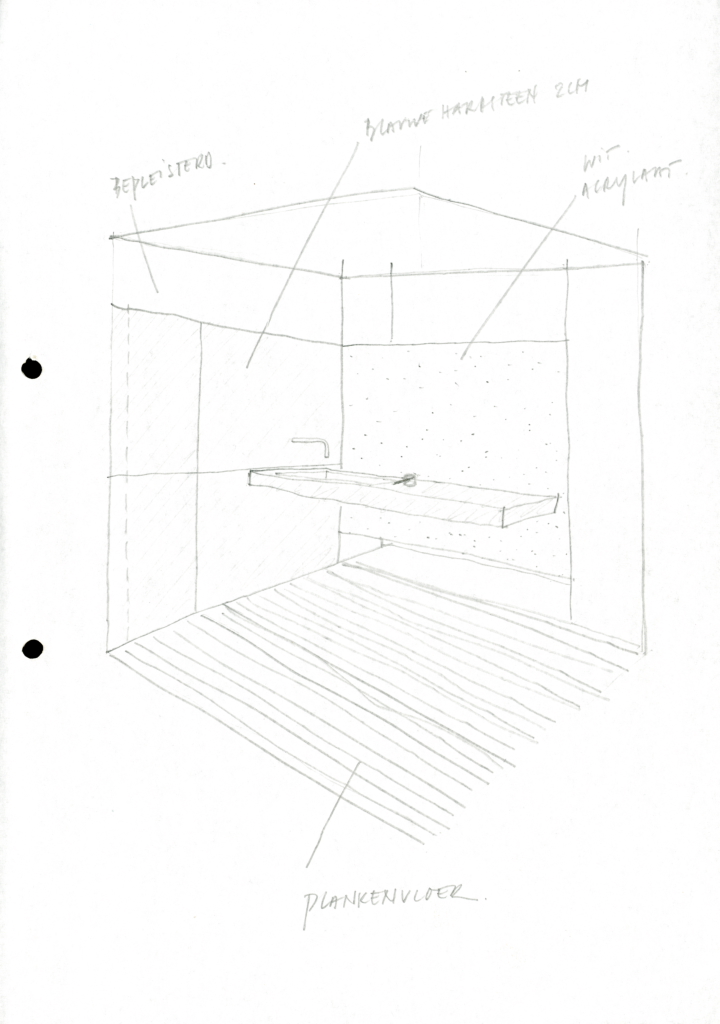 BLAUWE HARDSTEEN 2CM
BEPLEISTERD.
WIT.
ACRYLAAT.
PLANKENVLOER.